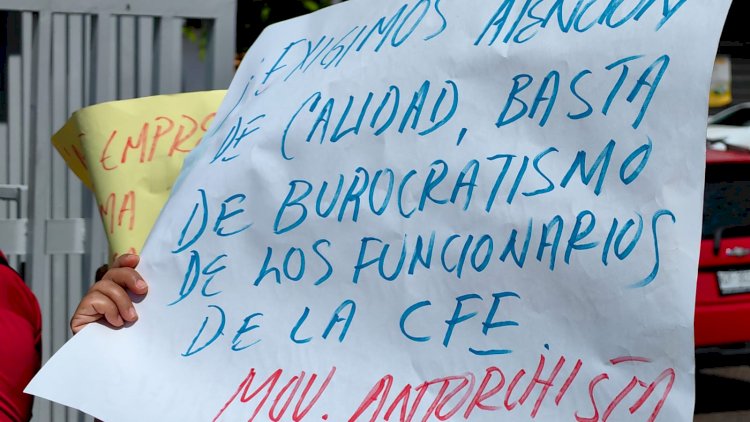 ¡EXIGIMOS ATENCIÓN
DE CALIDAD, BASTA
DE BUROCRATISMO
DE LOS FUNCIONARIOS
DE LA CFE.
MOV. ANTORCHISTA
EMPR
MA